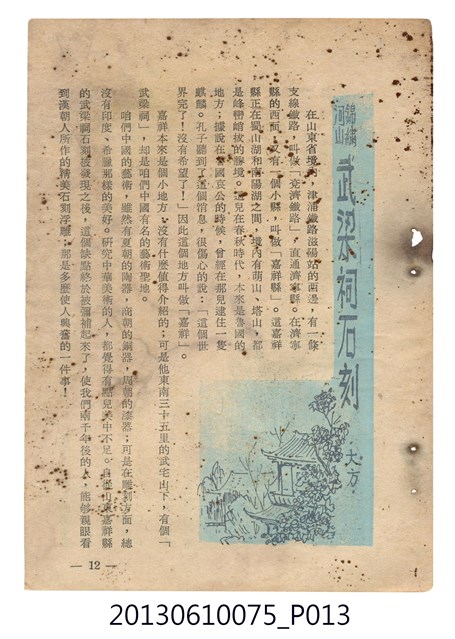 錦繡河山
武梁祠石刻
大方
在山東省境內，津浦鐵路滋陽站的西邊，有一條
支線鐵路，叫做「兗濟鐵路」，直通濟寧縣。在濟寧
縣的西面，又有一個小縣，叫做「嘉祥縣」。這嘉祥
縣正在蜀山湖和南陽湖之間，境內有萌山、塔山，都
是峰巒峭拔的勝境。這兒在春秋時代，本來是魯國的
地方；據說在魯哀公的時候，曾經在那兒逮住一隻
麒麟。孔子聽到了這個消息，很傷心的說：「這個世
界完了！沒有希望了！」因此這個地方叫做「嘉祥」。
嘉祥本來是個小地方，沒有什麼值得介紹的；可是他東南三十五里的武宅山下，有個「
武梁祠」，却是咱們中國有名的藝術聖地。
咱們中國的藝術，雖然有夏朝的陶器，商朝的銅器，周朝的漆器；可是在雕刻方面，總
沒有印度、希臘那樣的美好。研究中華美術的人，都覺得有點兒美中不足。自從山東嘉祥縣
的武梁祠石刻被發現之後，這個缺點終於被彌補起來了，使我們兩千年後的人，能够親眼看
到漢朝人所作的精美石刻浮雕；那是多麼使人興奮的一件事！
— 12 —
20130610075_P013